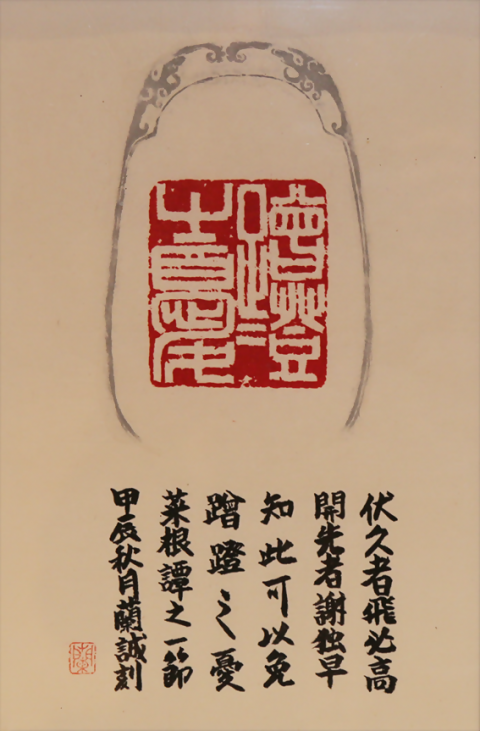 蹭蹬
之憂
伏久者飛必高
開先者謝独早
知此可以免
蹭蹬之憂
菜根譚之一節
甲辰秋月蘭誠刻